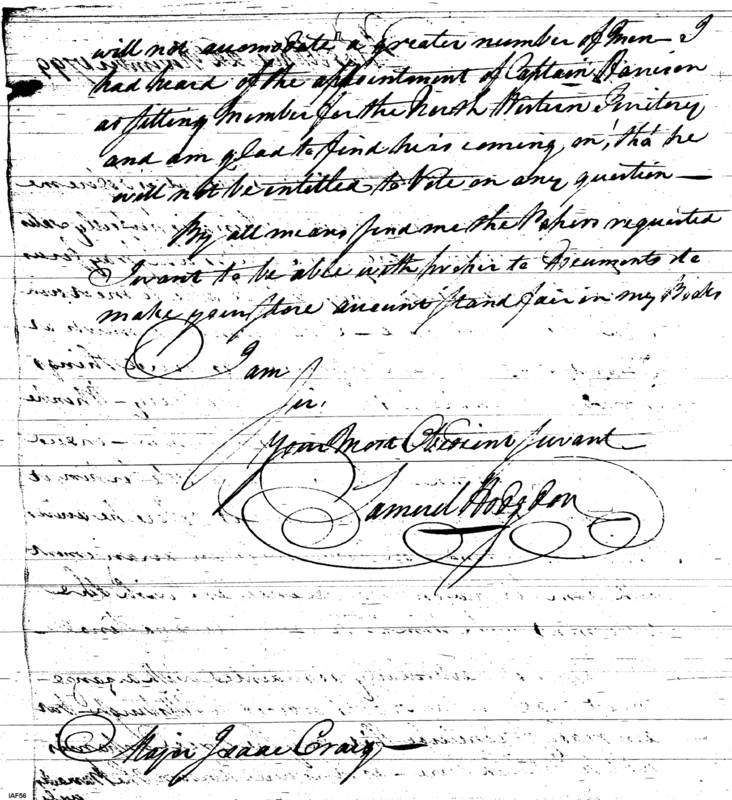 will not accomodate a greater number of Men — I
had heard of the appointment of Captain Harrison
as sitting Member for the North Western Territory
and am glad to find he is coming on, tho' he
will not be entitled to Vote on any question —
By all means send me the Papers requested
I want to be able with proper to Documents to
make your Store account stand fair in my Books
I am
Sir.
Your Most Obedient Servant
Samuel Hodgdon
Major Isaac Craig —
IAF56